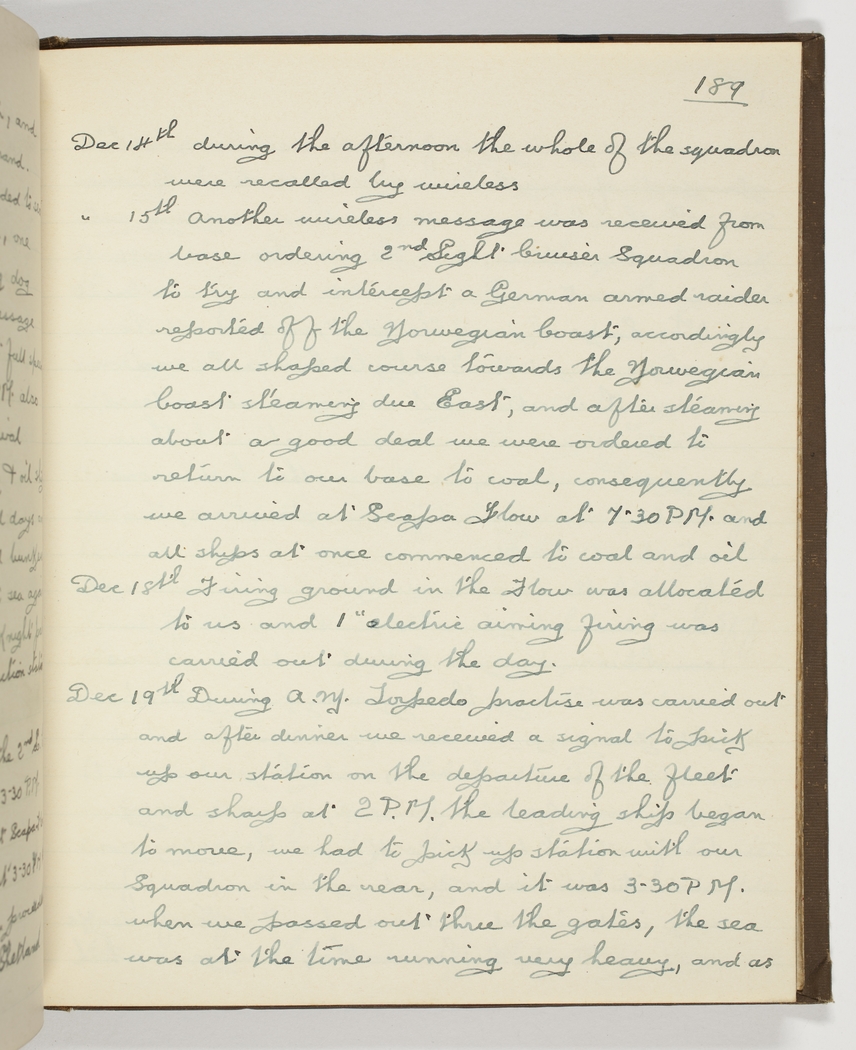 189
Dec 14th during the afternoon the whole of the squadron
were recalled by wireless
" 15th Another wireless message was received from
base ordering 2nd Light Cruiser Squadron
to try and intercept a German armed raider
reported off the Norwegian Coast, accordingly
we all shaped course towards the Norwegian
Coast steaming due East, and after steaming
about a good deal we were ordered to
return to our base to coal, consequently
we arrived at Scapa Flow at 7·30 P.M. and
all ships at once commenced to coal and oil
Dec 18th Firing ground in the Flow was allocated
to us and 1" electric aiming firing was
carried out during the day.
Dec 19th During A.M. Torpedo practise was carried out
and after dinner we received a signal to pick
up our station on the departure of the fleet
and sharp at 2 P.M. the leading ship began
to move, we had to pick up station with our
Squadron in the rear, and it was 3-30 P M.
when we passed out thru the gates, the sea
was at the time running very heavy, and as